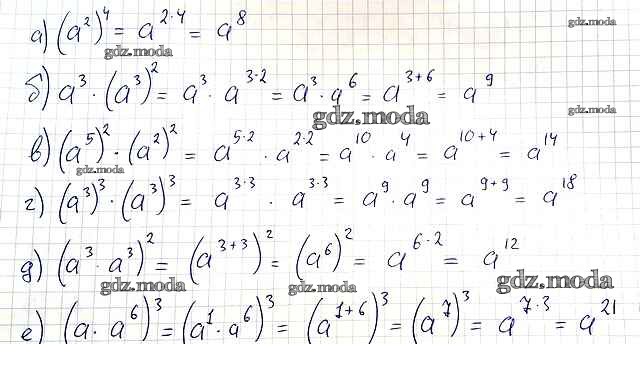 а) (a²)⁴ = a²·⁴ = a⁸
gdz.moda
gdz.moda
б) a³ · (a³)² = a³ · a³·² = a³ · a⁶ = a³⁺⁶ = a⁹
gdz.moda
gdz.moda
в) (a⁵)² · (a²)² = a⁵·² · a²·² = a¹⁰ · a⁴ = a¹⁰⁺⁴ = a¹⁴
gdz.moda
г) (a³)³ · (a³)³ = a³·³ · a³·³ = a⁹ · a⁹ = a⁹⁺⁹ = a¹⁸
д) (a³ · a³)² = (a³⁺³)² = (a⁶)² = a⁶·² = a¹²
gdz.moda
gdz.moda
gdz.moda
е) (a · a⁶)³ = (a¹ · a⁶)³ = (a¹⁺⁶)³ = (a⁷)³ = a⁷·³ = a²¹